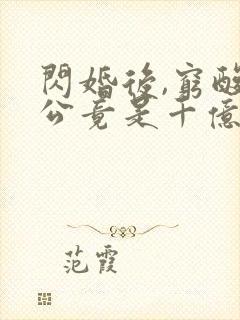 閃婚後,窮酸
公竟是十億
范霞